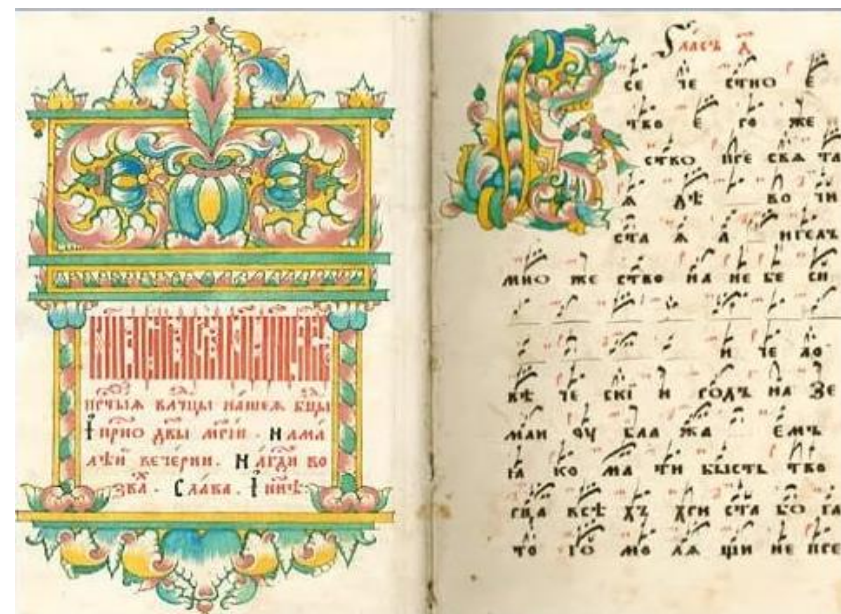 прⷭ҇тыѧ влⷣчцы нашеѧ бцⷣы
І҆ прⷭ҇но дв҃ы мр҃іи . на ма
лѣй вечерни . На гдⷭ҇и во
ззва . Слава . І҆ нн҃ѣ :
Гласъ а҃
се че стно е
тво е го же
ство пре свѧ та
ѧ дѣ во чи
ста ѧ а нгелъ
мно же ство на не бе си
и че ло
вѣ че скїи и родъ на зе
мли оу бла жа емъ
ꙗ ко ма ти бысть тво
рца всѣ хъ хри ста бо га
то го мо лѧ щи не пре